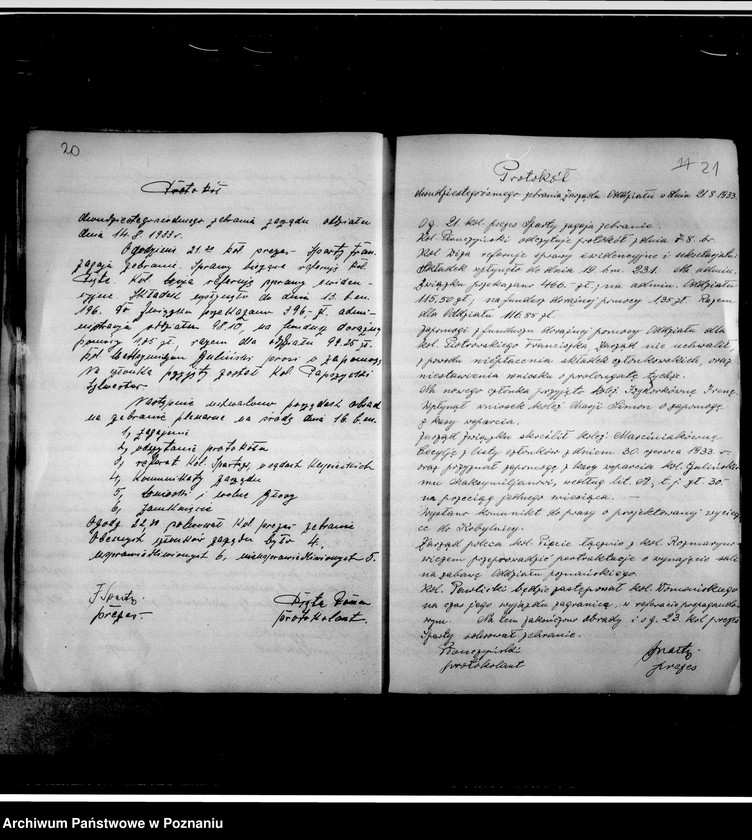 20
Protokół
dwudziestego siodmego zebrania zarządu oddziału
dnia 14.8 1933 r.
O godzinie 21.20 kol prezes Sparty Fran.
zagaja zebranie. Sprawy bieżące referują kol
kol. referują sprawy ewiden-
cyjne. Składek wpłynęło do dnia 13. b.m.
196. do Związku przekazano 396,- zł. admi-
nistracja oddziału 98.10, na fundusz doraźnej
pomocy 105 zł, razem dla oddziału 98.25 zł.
Kol Guliński prosi o zapomogę
na członka przyjęty został kol. Paprzycki
Sylwester.
Następnie uchwalono porządek obrad
na zebranie plenarne na środę dnia 16. b.m.
1, zagajenie
2, odczytanie protokołu
3, referat kol. Spartego, o sądach
4, komunikaty zarządu
5, wnioski i wolne głosy
6, zamknięcie
O godz. 22.30 solwował kol prezes zebranie
Obecnych członków zarządu było 4.
usprawiedliwionych 6, nieusprawiedliwionych 5.
F. Sparty
prezes.
protokolant.
21
Protokół
dwudziestegoósmego zebrania Zarządu Oddziału w dniu 21.8.1933.
O g. 21. kol. prezes Sparty zagaja zebranie.
Kol. Tomczyński odczytuje protokół z dnia 7.8. br.
Kol. referuje sprawy ewidencyjne i sekretarjatu.
Składek wpłynęło do dnia 19. b.m. 231. Na admin.
Związku przekazano 466.- zł; na admin. Oddziału
115,50 zł, na fundusz doraźnej pomocy 135 zł. Razem
dla Oddziału 116.85 zł.
Zapomogi z funduszu doraźnej pomocy Oddziału dla
kol. Piotrowskiego Franciszka, Zarząd nie uchwalił,
z powodu niepłacenia składek członkowskich, oraz
niestawienia wniosku o prolongatę tychże.
Na nowego członka przyjęto kolež. Irenę.
Wpłynął wniosek kolež. Marji Simon o zapomogę
z kasy wsparcia.
Zarząd Związku skreślił kolež. Marciniakównę
Cecylję z listy członków z dniem 30. czerwca 1933 r.
oraz przyznał zapomogę z kasy wsparcia kol. Gulińskie-
mu Maksymiljanowi, według lit. A, t. j. zł. 30.-
na przeciąg jednego miesiąca. —
Wysłano komunikat do prasy o projektowanej wyciecz-
ce do Kobylnicy.
Zarząd poleca kol. łącznie z kol. Rozmaryno-
wiczem przeprowadzić pertraktacje o wynajęcie sali
na zabawę Oddziału poznańskiego.
Kol. Pawlicki będzie zastępował kol. Domońskiego
na czas jego wyjazdu zagranicę, w referacie propagando-
wym. Na tem zakończono obrady i o g. 23. kol. prezes
Sparty solwował zebranie.
Tomczyński
protokolant
Sparty
prezes
Archiwum Państwowe w Poznaniu